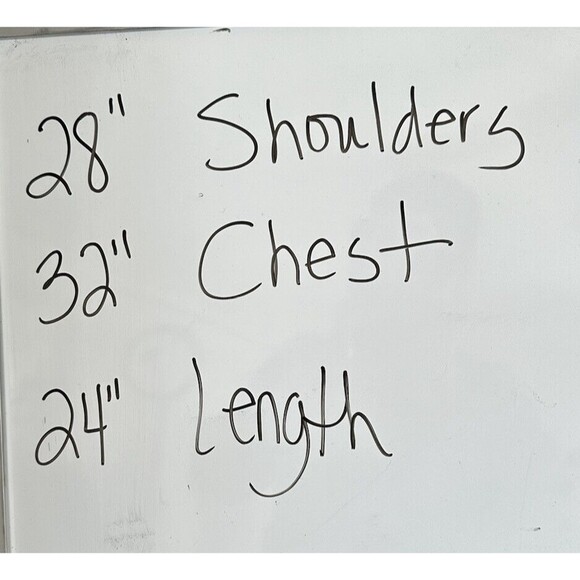 28" Shoulders
32" Chest
24" Length